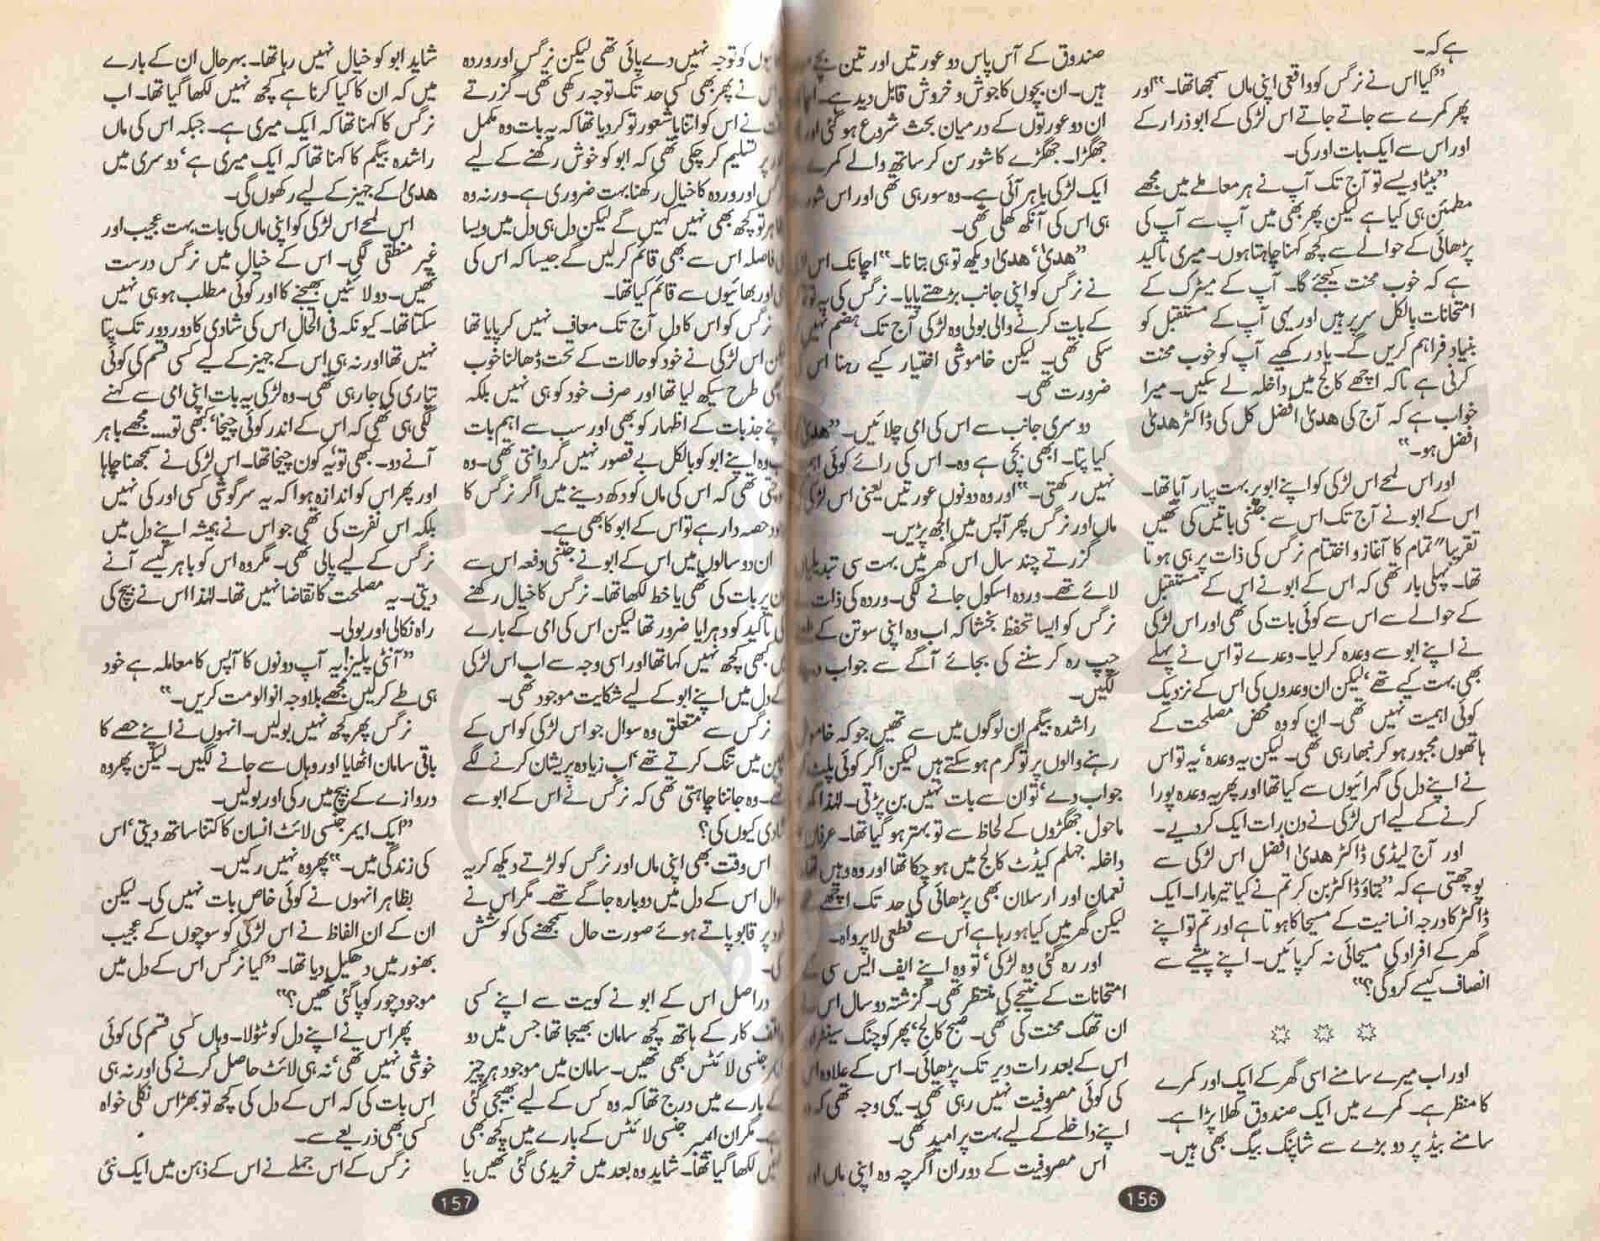 ہے کہ۔
”کیا اس نے نرگس کو واقعی اپنی ماں سمجھا تھا۔“ اور
پھر کمرے سے جاتے جاتے اس لڑکی کے ابو ذرار کے
اور اس سے ایک بات اور کی۔
”بیٹا ویسے تو آج تک آپ نے ہر معاملے میں مجھے
مطمئن ہی کیا ہے لیکن پھر بھی میں آپ سے آپ کی
پڑھائی کے حوالے سے کچھ کہنا چاہتا ہوں۔ میری تاکید
ہے کہ خوب محنت کیجئے گا۔ آپ کے میٹرک کے
امتحانات بالکل سر پر ہیں اور یہی آپ کے مستقبل کو
بنیاد فراہم کریں گے۔ یاد رکھیے آپ کو خوب محنت
کرنی ہے تاکہ اچھے کالج میں داخلہ لے سکیں۔ میرا
خواب ہے کہ آج کی ھدیٰ افضل کل کی ڈاکٹر ھدیٰ
افضل ہو۔“
اور اس لمحے اس لڑکی کو اپنے ابو پر بہت پیار آیا تھا۔
اس کے ابو نے آج تک اس سے جتنی باتیں کی تھیں
تقریباً تمام کا آغاز و اختتام نرگس کی ذات پر ہی ہوتا
تھا۔ پہلی بار تھی کہ اس کے ابو نے اس کے مستقبل
کے حوالے سے اس سے کوئی بات کی تھی اور اس لڑکی
نے اپنے ابو سے وعدہ کر لیا۔ وعدے تو اس نے پہلے
بھی بہت کیے تھے، لیکن ان وعدوں کی اس کے نزدیک
کوئی اہمیت نہیں تھی۔ ان کو وہ محض مصلحت کے
ہاتھوں مجبور ہو کر نبھا رہی تھی۔ لیکن یہ وعدہ، یہ تو اس
نے اپنے دل کی گہرائیوں سے کیا تھا اور پھر یہ وعدہ پورا
کرنے کے لیے اس لڑکی نے دن رات ایک کر دیے۔
اور آج لیڈی ڈاکٹر ھدیٰ افضل اس لڑکی سے
پوچھتی ہے کہ ”بتاؤ ڈاکٹر بن کر تم نے کیا تیر مارا۔ ایک
ڈاکٹر کا درجہ انسانیت کے مسیحا کا ہوتا ہے اور تم تو اپنے
گھر کے افراد کی مسیحائی نہ کر پائیں۔ اپنے پیشے سے
انصاف کیسے کرو گی؟“
اور اب میرے سامنے اسی گھر کے ایک اور کمرے
کا منظر ہے۔ کمرے میں ایک صندوق کھلا پڑا ہے۔
سامنے بیڈ پر دو بڑے سے شاپنگ بیگ بھی ہیں۔
صندوق کے آس پاس دو عورتیں اور تین بچے
ہیں۔ ان بچوں کا جوش و خروش قابل دید ہے۔
ان دو عورتوں کے درمیان بحث شروع ہو گئی اور
جھگڑا۔ جھگڑے کا شور سن کر ساتھ والے کمرے
ایک لڑکی باہر آئی ہے۔ وہ سو رہی تھی اور اس شور
ہی اس کی آنکھ کھلی تھی۔
”ھدیٰ، ھدیٰ دیکھ تو ہی بتانا۔“ اچانک اس
نے نرگس کو اپنی جانب بڑھتے پایا۔ نرگس کی یہ تو
کے بات کرنے والی بولی وہ لڑکی آج تک ہضم نہیں
سکی تھی۔ لیکن خاموشی اختیار کیے رہنا اس
ضرورت تھی۔
دوسری جانب سے اس کی امی چلائیں۔ ”ھدیٰ
کیا پتا۔ ابھی بچی ہے وہ۔ اس کی رائے کوئی
نہیں رکھتی۔“ اور وہ دونوں عورتیں یعنی اس لڑکی
ماں اور نرگس پھر آپس میں الجھ پڑیں۔
گزرتے چند سال اس گھر میں بہت سی تبدیلیاں
لائے تھے۔ وردہ اسکول جانے لگی۔ وردہ کی ذات
نرگس کو ایسا تحفظ بخشا کہ اب وہ اپنی سوتن کے
چپ رہ کر سننے کی بجائے آگے سے جواب
لگیں۔
راشدہ بیگم ان لوگوں میں سے تھیں جو کہ خاموش
رہنے والوں پر تو گرم ہو سکتے ہیں لیکن اگر کوئی پلٹ
جواب دے، تو ان سے بات نہیں بن پڑتی۔ لہٰذا
ماحول جھگڑوں کے لحاظ سے تو بہتر ہو گیا تھا۔ عرفان
داخلہ جہلم کیڈٹ کالج میں ہو چکا تھا اور وہ وہیں
نعمان اور ارسلان بھی پڑھائی کی حد تک اچھے
لیکن گھر میں کیا ہو رہا ہے اس سے قطعی لاپرواہ۔
اور رہ گئی وہ لڑکی، تو وہ اپنے ایف ایس سی کے
امتحانات کے نتیجے کی منتظر تھی۔ گزشتہ دو سال اس
ان تھک محنت کی تھی۔ صبح کالج، پھر کوچنگ سینٹر
اس کے بعد رات دیر تک پڑھائی۔ اس کے علاوہ اس
کی کوئی مصروفیت نہیں رہی تھی۔ یہی وجہ تھی کہ
اپنے داخلے کے لیے بہت پر امید تھی۔
اس مصروفیت کے دوران اگرچہ وہ اپنی ماں اور
156
کو توجہ نہیں دے پائی تھی لیکن نرگس اور وردہ
نے پھر بھی کسی حد تک توجہ رکھی تھی۔ گزرتے
نے اس کو اتنا باشعور تو کر دیا تھا کہ یہ بات وہ مکمل
پر تسلیم کر چکی تھی کہ ابو کو خوش رکھنے کے لیے
اور وردہ کا خیال رکھنا بہت ضروری ہے۔ ورنہ وہ
تو کچھ بھی نہیں کہیں گے لیکن دل ہی دل میں ویسا
فاصلہ اس سے بھی قائم کر لیں گے جیسا کہ اس کی
اور بھائیوں سے قائم کیا تھا۔
نرگس کو اس کا دل آج تک معاف نہیں کر پایا تھا
اس لڑکی نے خود کو حالات کے تحت ڈھالنا خوب
طرح سیکھ لیا تھا اور صرف خود کو ہی نہیں بلکہ
جذبات کے اظہار کو بھی اور سب سے اہم بات
وہ اپنے ابو کو بالکل بے قصور نہیں گردانتی تھی۔ وہ
تھی کہ اس کی ماں کو دکھ دینے میں اگر نرگس کا
حصہ دار ہے تو اس کے ابو کا بھی ہے۔
ان دو سالوں میں اس کے ابو نے جتنی دفعہ اس سے
پر بات کی تھی یا خط لکھا تھا۔ نرگس کا خیال رکھنے
کی تاکید کو دہرایا ضرور تھا لیکن اس کی امی کے بارے
کبھی کچھ نہیں کہا تھا اور اسی وجہ سے اب اس لڑکی
کے دل میں اپنے ابو کے لیے شکایت موجود تھی۔
نرگس سے متعلق وہ سوال جو اس لڑکی کو اس کے
میں تنگ کرتے تھے، اب زیادہ پریشان کرنے لگے
۔ وہ جاننا چاہتی تھی کہ نرگس نے اس کے ابو سے
شادی کیوں کی؟
اس وقت بھی اپنی ماں اور نرگس کو لڑتے دیکھ کر یہ
سوال اس کے دل میں دوبارہ جاگے تھے۔ مگر اس نے
پر قابو پاتے ہوئے صورت حال سمجھنے کی کوشش
کی۔
دراصل اس کے ابو نے کویت سے اپنے کسی
کار کے ہاتھ کچھ سامان بھیجا تھا جس میں دو
ایمرجنسی لائٹس بھی تھیں۔ سامان میں موجود ہر چیز
کے بارے میں درج تھا کہ وہ کس کے لیے بھیجی گئی
ہے۔ مگر ان ایمرجنسی لائٹس کے بارے میں کچھ بھی
نہیں لکھا گیا تھا۔ شاید وہ بعد میں خریدی گئی تھیں یا
شاید ابو کو خیال نہیں رہا تھا۔ بہرحال ان کے بارے
میں کہ ان کا کیا کرنا ہے کچھ نہیں لکھا گیا تھا۔ اب
نرگس کا کہنا تھا کہ ایک میری ہے۔ جبکہ اس کی ماں
راشدہ بیگم کا کہنا تھا کہ ایک میری ہے، دوسری میں
ھدیٰ کے جہیز کے لیے رکھوں گی۔
اس لمحے اس لڑکی کو اپنی ماں کی بات بہت عجیب اور
غیر منطقی لگی۔ اس کے خیال میں نرگس درست
تھیں۔ دو لائٹیں بھیجنے کا اور کوئی مطلب ہو ہی نہیں
سکتا تھا۔ کیونکہ فی الحال اس کی شادی کا دور دور تک پتا
نہیں تھا اور نہ ہی اس کے جہیز کے لیے کسی قسم کی کوئی
تیاری کی جا رہی تھی۔ وہ لڑکی یہ بات اپنی امی سے کہنے
لگی ہی تھی کہ اس کے اندر کوئی چیخا، کبھی تو..... مجھے باہر
آنے دو۔ بھی تو، یہ کون چیخا تھا۔ اس لڑکی نے سمجھنا چاہا
اور پھر اس کو اندازہ ہوا کہ یہ سرگوشی کسی اور کی نہیں
بلکہ اس نفرت کی تھی جو اس نے ہمیشہ اپنے دل میں
نرگس کے لیے پالی تھی۔ مگر وہ اس کو باہر کیسے آنے
دیتی۔ یہ مصلحت کا تقاضا نہیں تھا۔ لہٰذا اس نے بیچ کی
راہ نکالی اور بولی۔
”آنٹی پلیز! یہ آپ دونوں کا آپس کا معاملہ ہے خود
ہی طے کر لیں مجھے بلاوجہ انوالو مت کریں۔“
نرگس پھر کچھ نہیں بولیں۔ انہوں نے اپنے حصے کا
باقی سامان اٹھایا اور وہاں سے جانے لگیں۔ لیکن پھر وہ
دروازے کے بیچ میں رکی اور بولیں۔
”ایک ایمرجنسی لائٹ انسان کا کتنا ساتھ دیتی، اس
کی زندگی میں۔“ پھر وہ نہیں رکیں۔
بظاہر انہوں نے کوئی خاص بات نہیں کی۔ لیکن
ان کے ان الفاظ نے اس لڑکی کو سوچوں کے عجیب
بھنور میں دھکیل دیا تھا۔ ”کیا نرگس اس کے دل میں
موجود چور کو پا گئی تھیں؟“
پھر اس نے اپنے دل کو ٹٹولا۔ وہاں کسی قسم کی کوئی
خوشی نہیں تھی، نہ ہی لائٹ حاصل کرنے کی اور نہ ہی
اس بات کی کہ اس کے دل کی کچھ تو بھڑاس نکلی خواہ
کسی بھی ذریعے سے۔
نرگس کے اس جملے نے اس کے ذہن میں ایک نئی
157